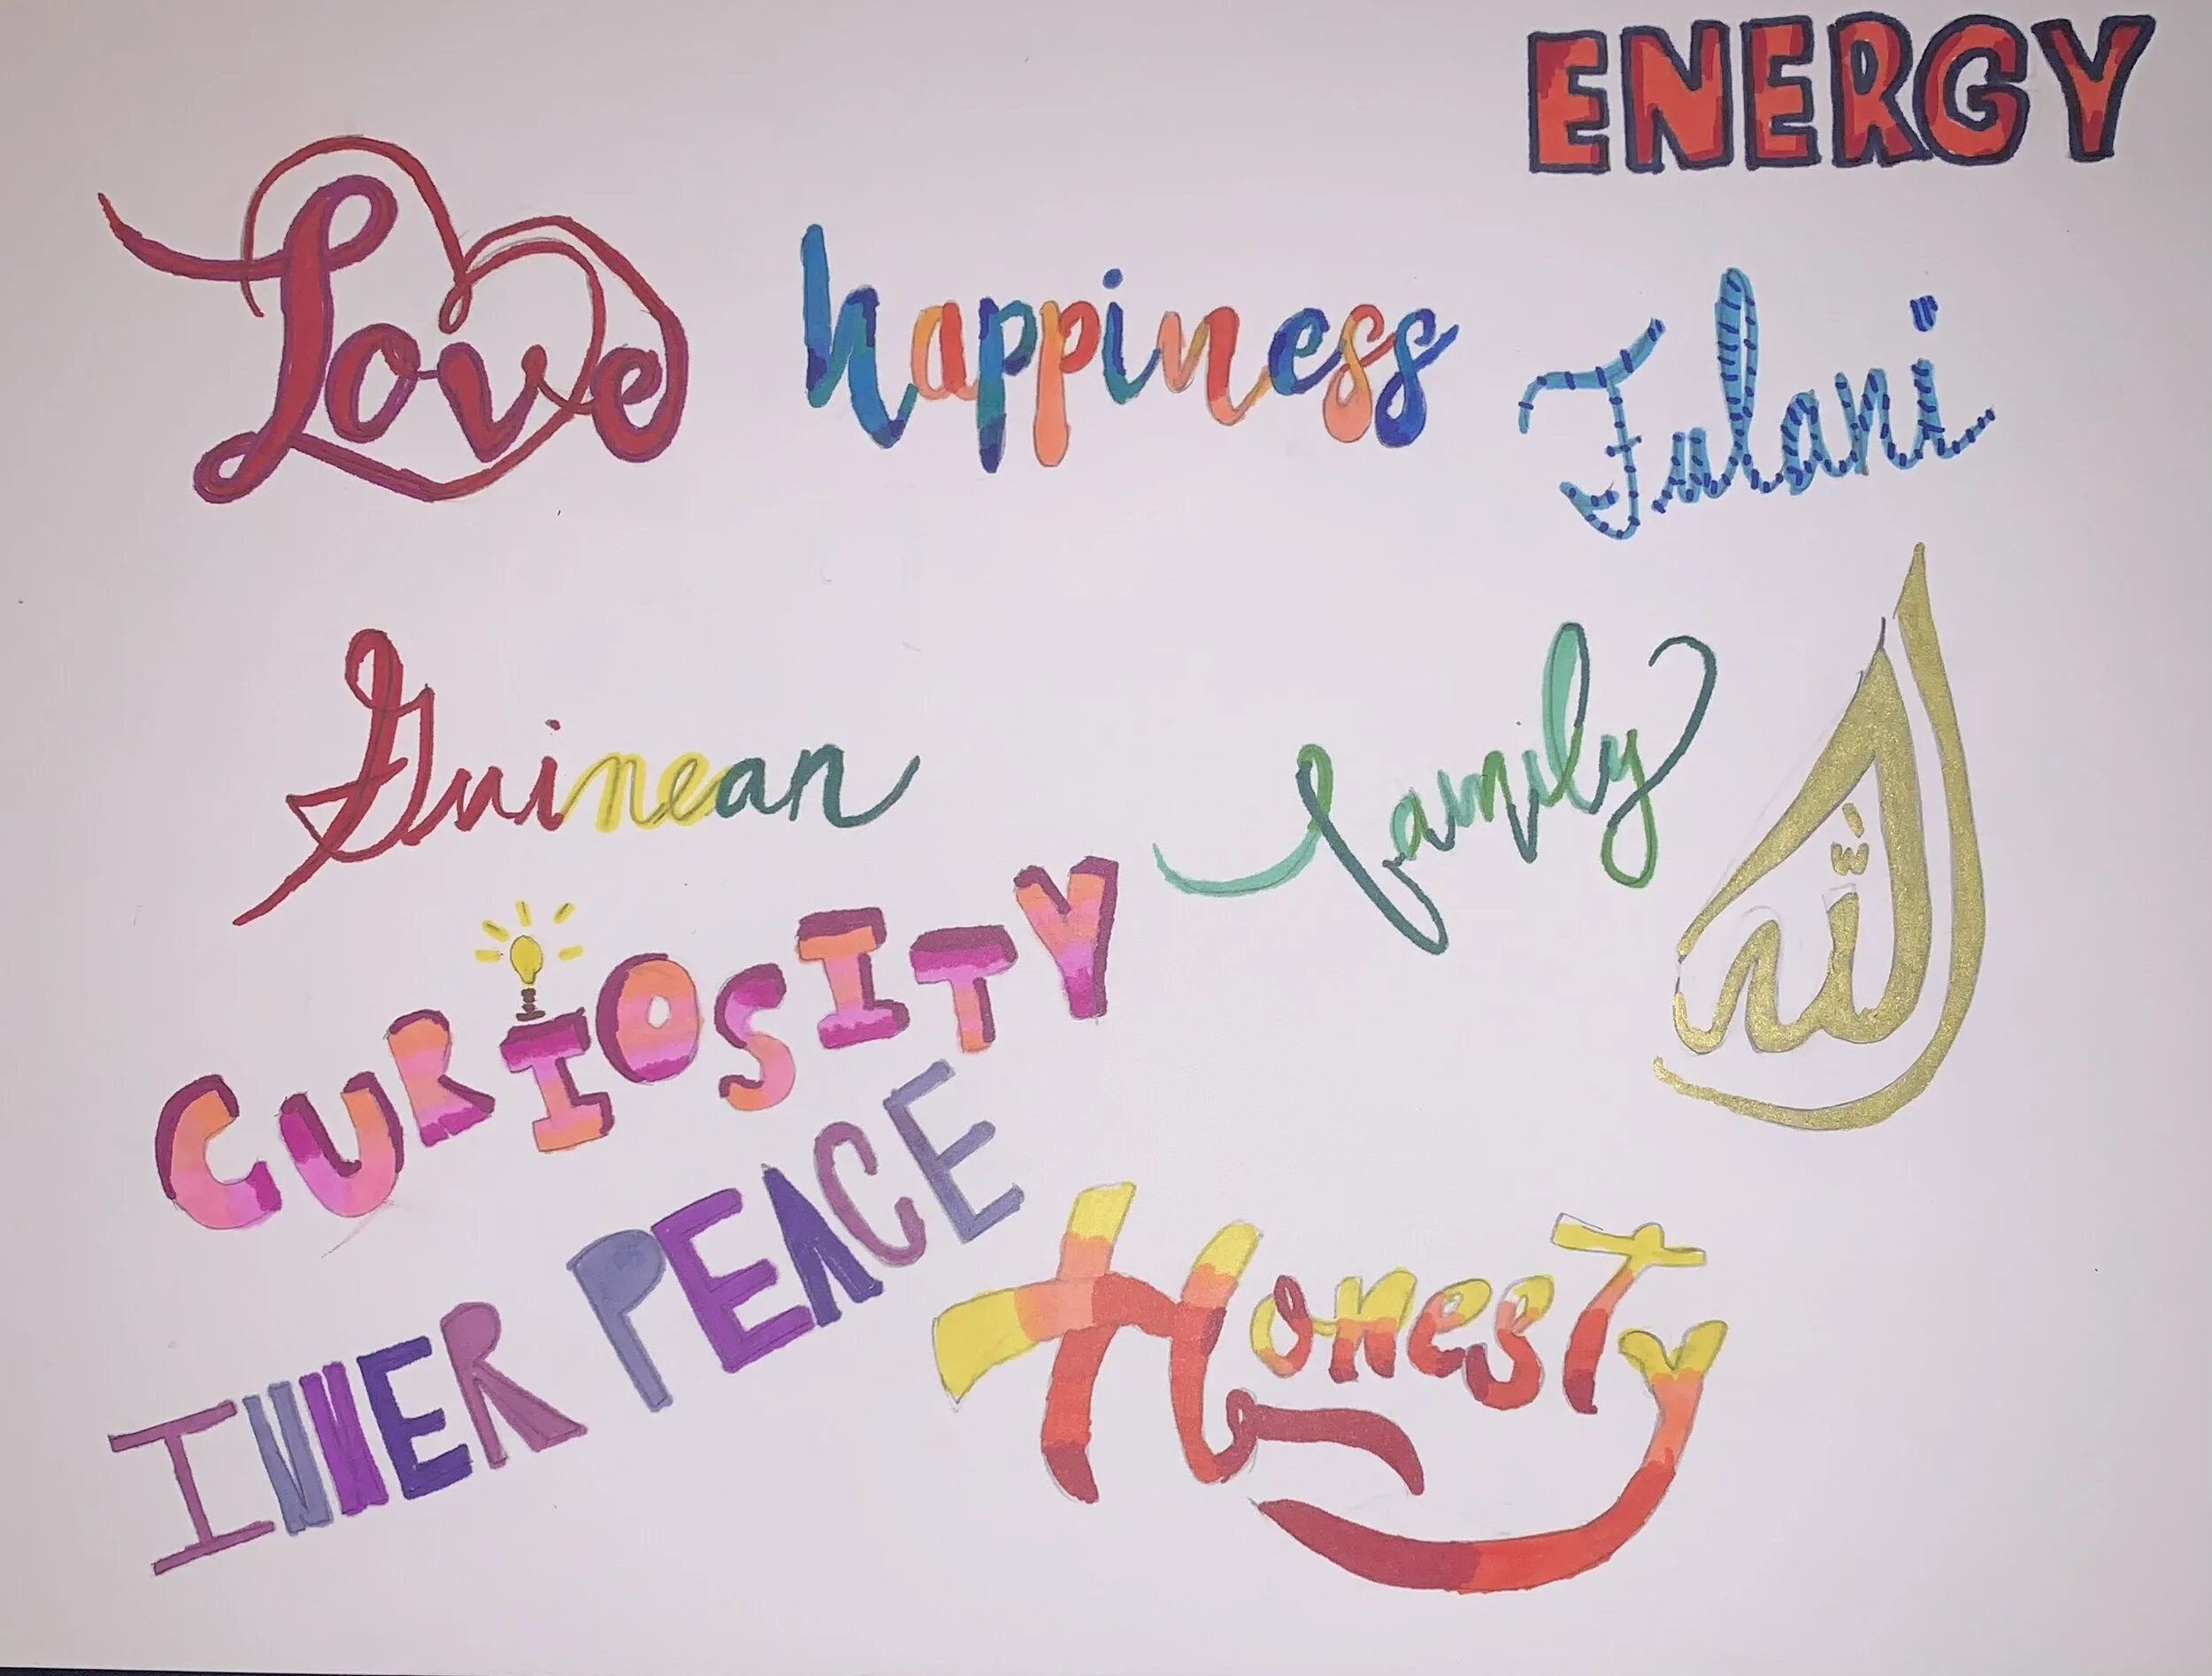 ENERGY
Love
happiness
Fulani
Guinean
family
الله
CURIOSITY
INNER PEACE
Honesty